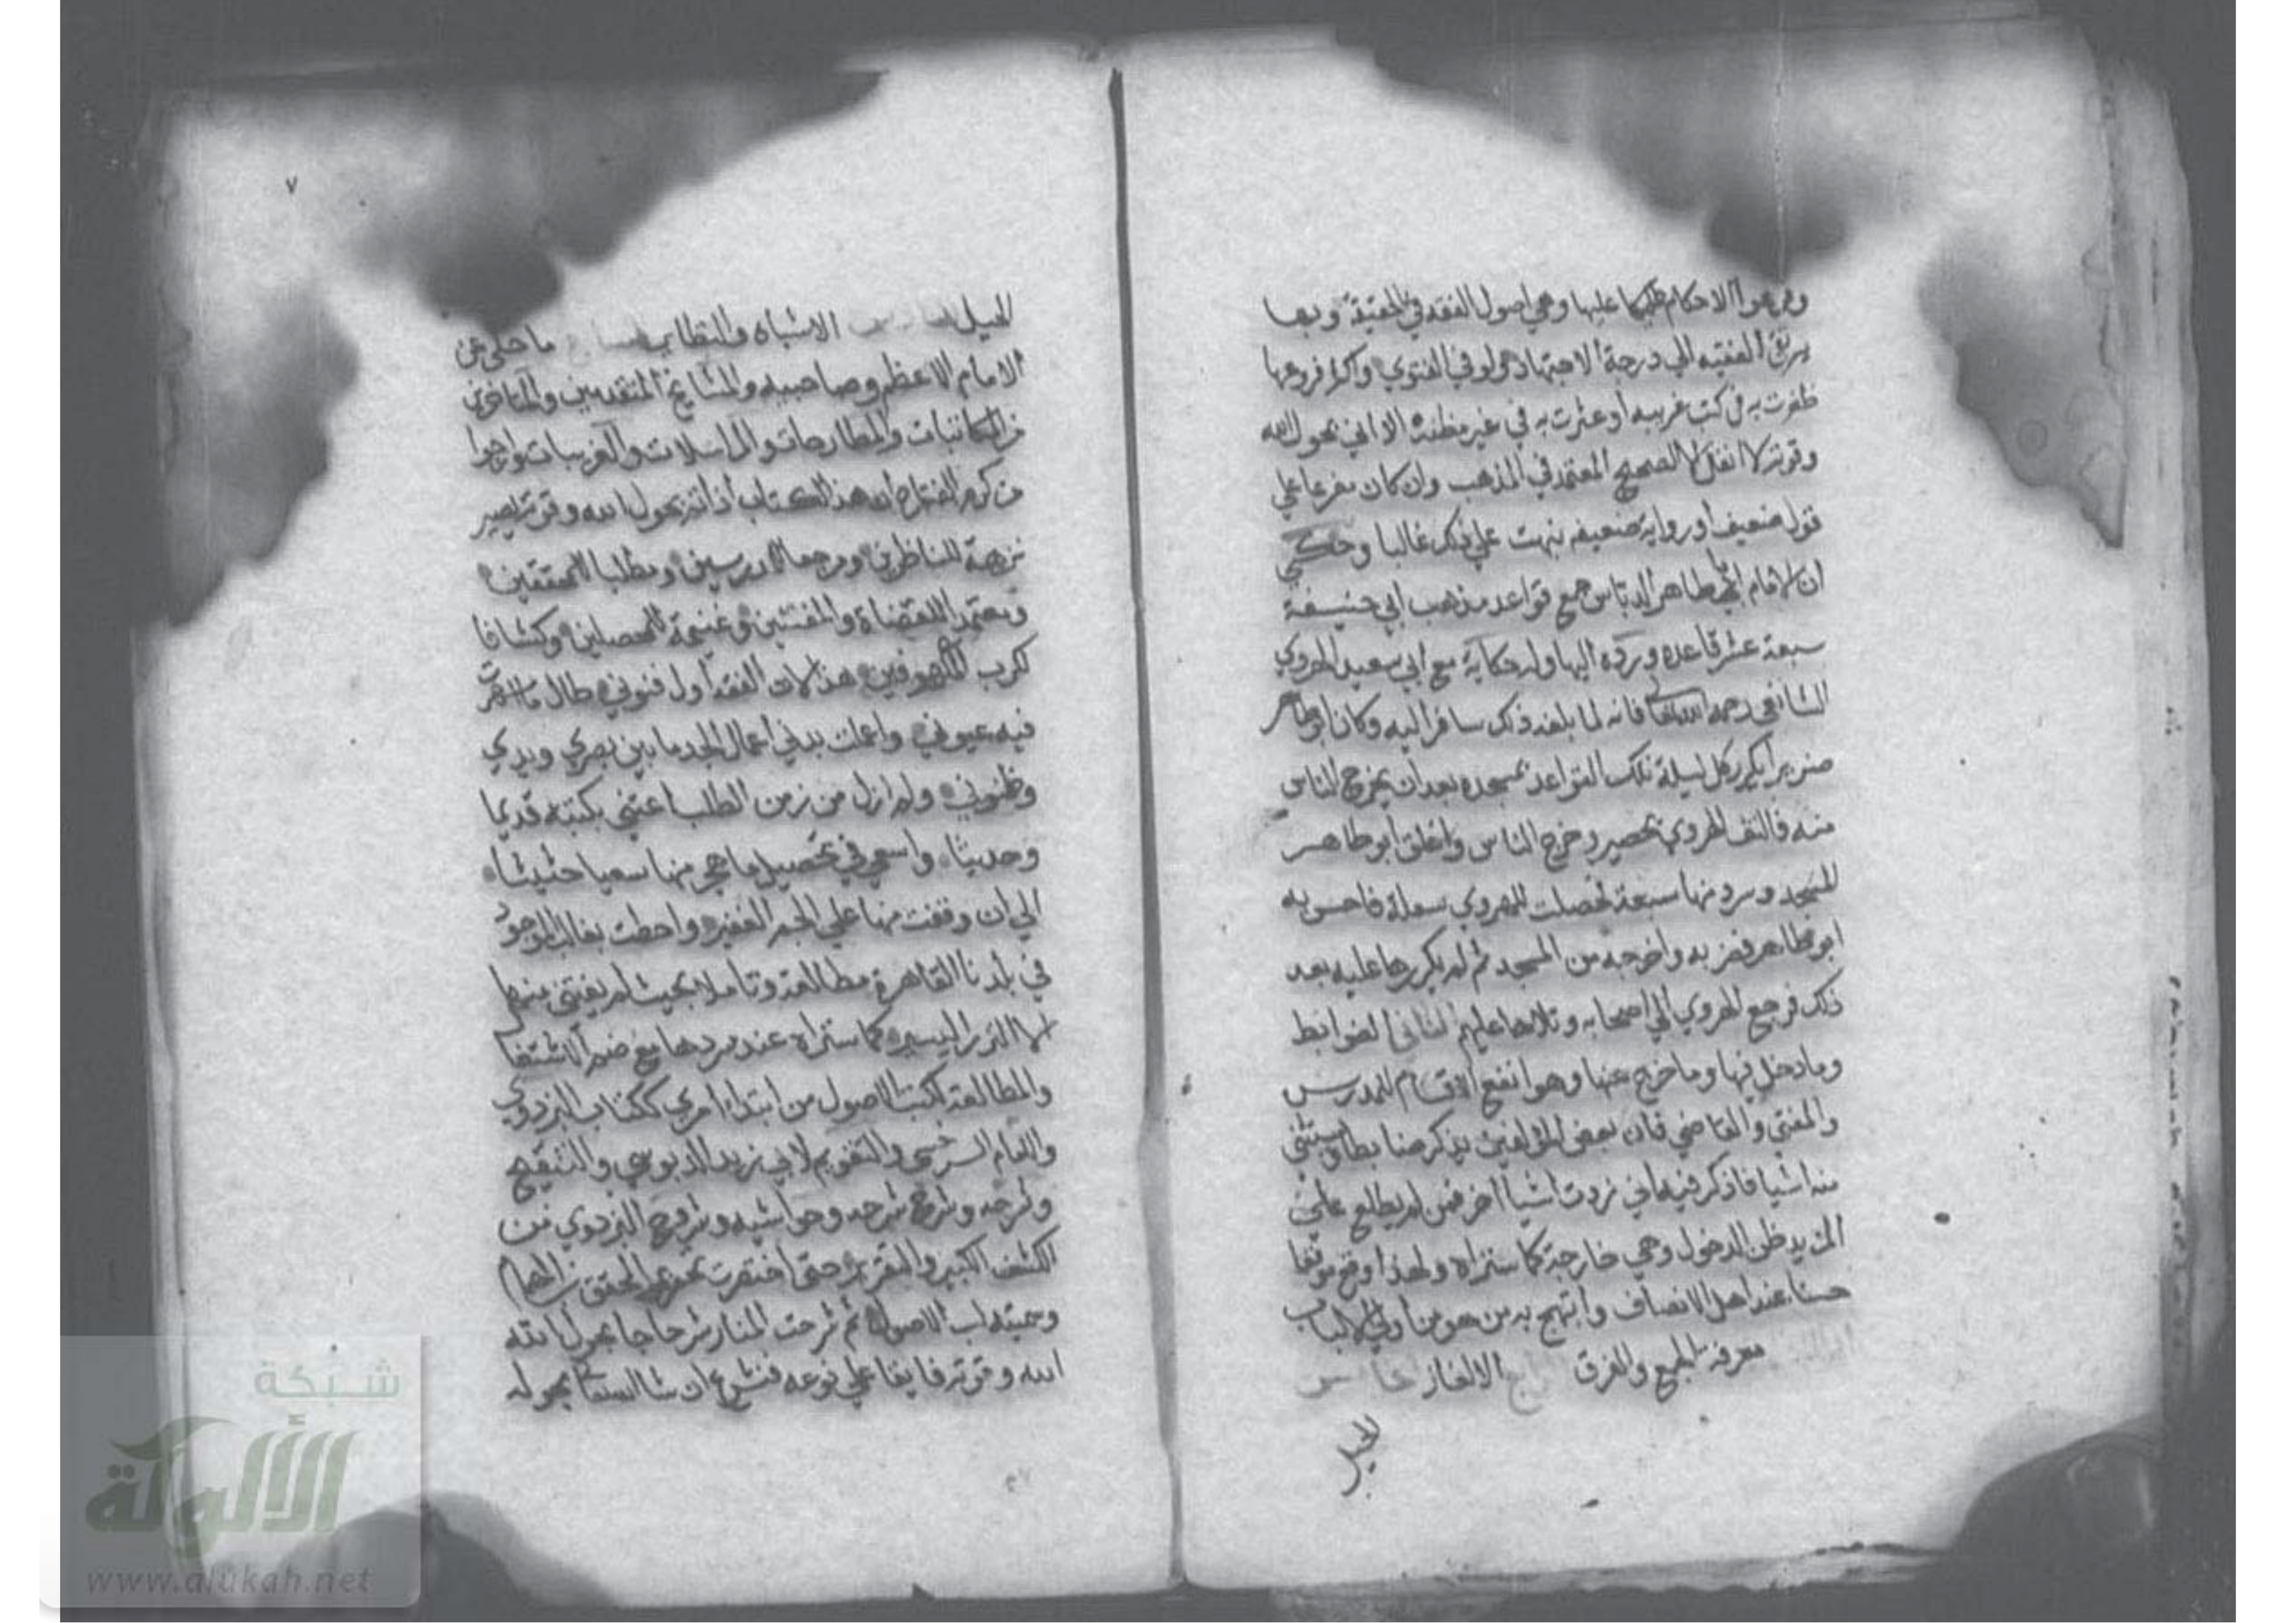 وفرعوا الاحكام عليها وهي اصول الفقه في الحقيقة وبها
يرتقي الفقيه الي درجة الاجتهاد ولو في الفتوي واكثر فروعها
ظفرت به في كتب غريبه او عثرت به في غير مظنته الا اني بحول الله
وقوته لا انقل الا الصحيح المعتمد في المذهب وان كان مفرعا علي
قول ضعيف او رواية ضعيفه نبهت علي ذلك غالبا وحكي
ان الامام ابي طاهر الدباس جمع قواعد مذهب ابي حنيفة
سبعة عشر قاعده ورده اليها وله حكاية مع ابي سعيد الهروي
الشافعي رحمه الله تعالي فانه لما بلغه ذلك سافر اليه وكان ابو طاهر
ضريرا يكرر كل ليلة تلك القواعد بمسجده بعد ان يخرج الناس
منه فالتف الهروي بحصير وخرج الناس واغلق ابو طاهر
المسجد وسرد منها سبعة فحصلت للهروي سعلة فاحس به
ابو طاهر فضربه واخرجه من المسجد ثم لم يكررها عليه بعد
ذلك فرجع الهروي الي اصحابه وتلاها عليهم الثاني الضوابط
وما دخل فيها وما خرج عنها وهو انفع الاقسام للمدرس
والمفتي والقاضي فان بعض المؤلفين يذكر ضابطا ويستثني
منه اشيا فاذكر فيه اني زدت اشيا اخر فمن لم يطلع علي
المزيد ظن الدخول وهي خارجة كما ستراه ولهذا وقع موقعا
حسنا عند اهل الانصاف وابتهج به من هو من اولي الالباب
معرفة الجمع والفرق الالغاز
الحيل
٧
الحيل الاشباه والنظاير ما حكي عن
الامام الاعظم وصاحبيه والمشايخ المتقدمين والمتاخرين
من المكاتبات والمطارحات والمراسلات والغريبات وارجوا
من كرم الفتاح ان هذا الكتاب اذا تم بحول الله وقوته يصير
نزهة للناظرين ومرجعا للمدرسين ومطلبا للمحققين
ومعتمدا للقضاة والمفتين وغنيمة للمحصلين وكشافا
لكرب الملهوفين هذا لان الفقه اول فنوني طال ما اسهرت
فيه عيوني واعملت بدني اعمال الجد ما بين بصري ويدي
وظنوني ولم ازل من زمن الطلب اعتني بكتبه قديما
وحديثا واسعي في تحصيل ما هجر منها سعيا حثيثا
الي ان وقفت منها علي الجم الغفير واحطت بغالب الموجود
في بلدنا القاهرة مطالعة وتاملا بحيث لم يفتني منها
الا النزر اليسير كما ستراه عند سردها مع ضم الاشتغال
والمطالعة لكتب الاصول من ابتداء امري ككتاب البزدوي
والامام السرخسي والتقويم لابي زيد الدبوسي والتنقيح
وشرحه وشرح شرحه وحواشيه وشروح البزدوي من
الكشف الكبير والتقرير حتي اختصرت تحرير المحقق ابن الهمام
وسميته لب الاصول ثم شرحت المنار شرحا جا بحول الله
الله وقوته فايقا علي نوعه فنشرع ان شا الله تعالي بحوله
شبكة
الألوكة
www.alukah.net